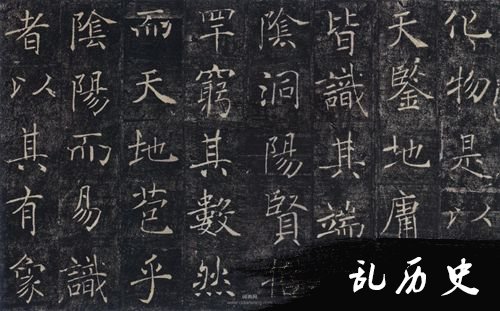 化物是以
天鑒地庸
皆識其端
陰洞陽賢
罕窮其數然
而天地苞乎
陰陽而易識
者以其有象
乱历史